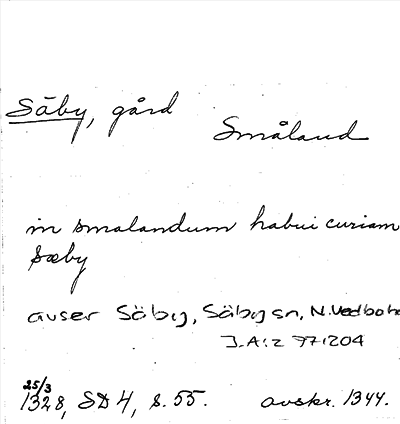 Säby, gård
Småland
in smalandum habui curiam
sæby
avser Säby, Säby sn, N. Vedbo hd
J.A:z 771204
25/3
1328, SD 4, s. 55. avskr. 1344.